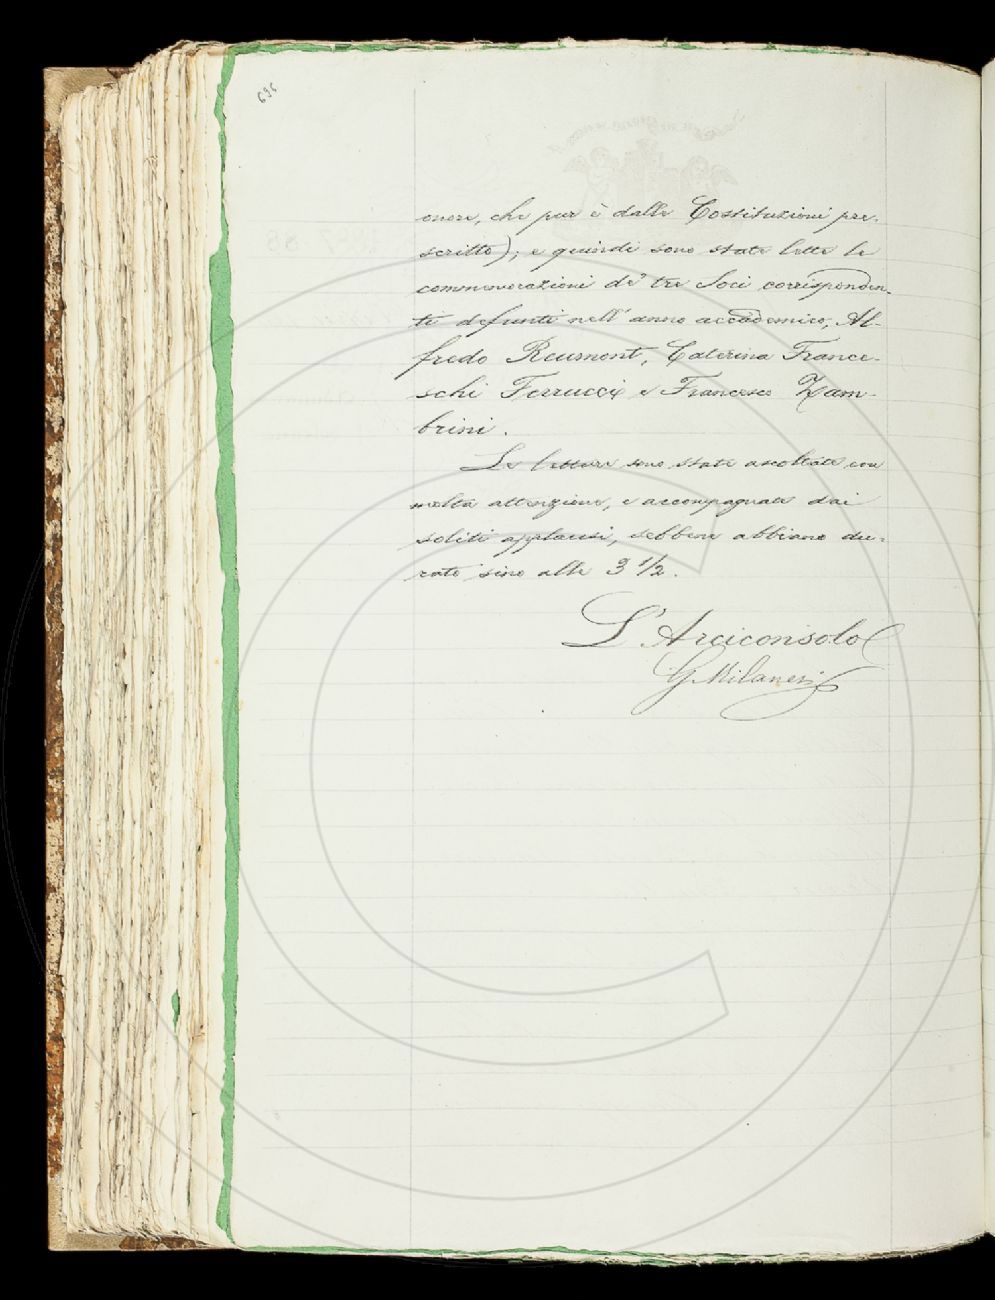 696
onore, che pur è dalle Costituzioni pre-
scritto); e quindi sono state lette le
commemorazioni de' tre Soci corrisponden-
ti defunti nell'anno accademico, Al-
fredo Reumont, Caterina France-
schi Ferrucci e Francesco Zam-
brini.
Le letture sono state ascoltate con
molta attenzione, e accompagnate dai
soliti applausi, sebbene abbiano du-
rato sino alle 3 1/2.
L'Arciconsolo
G. Milanesi